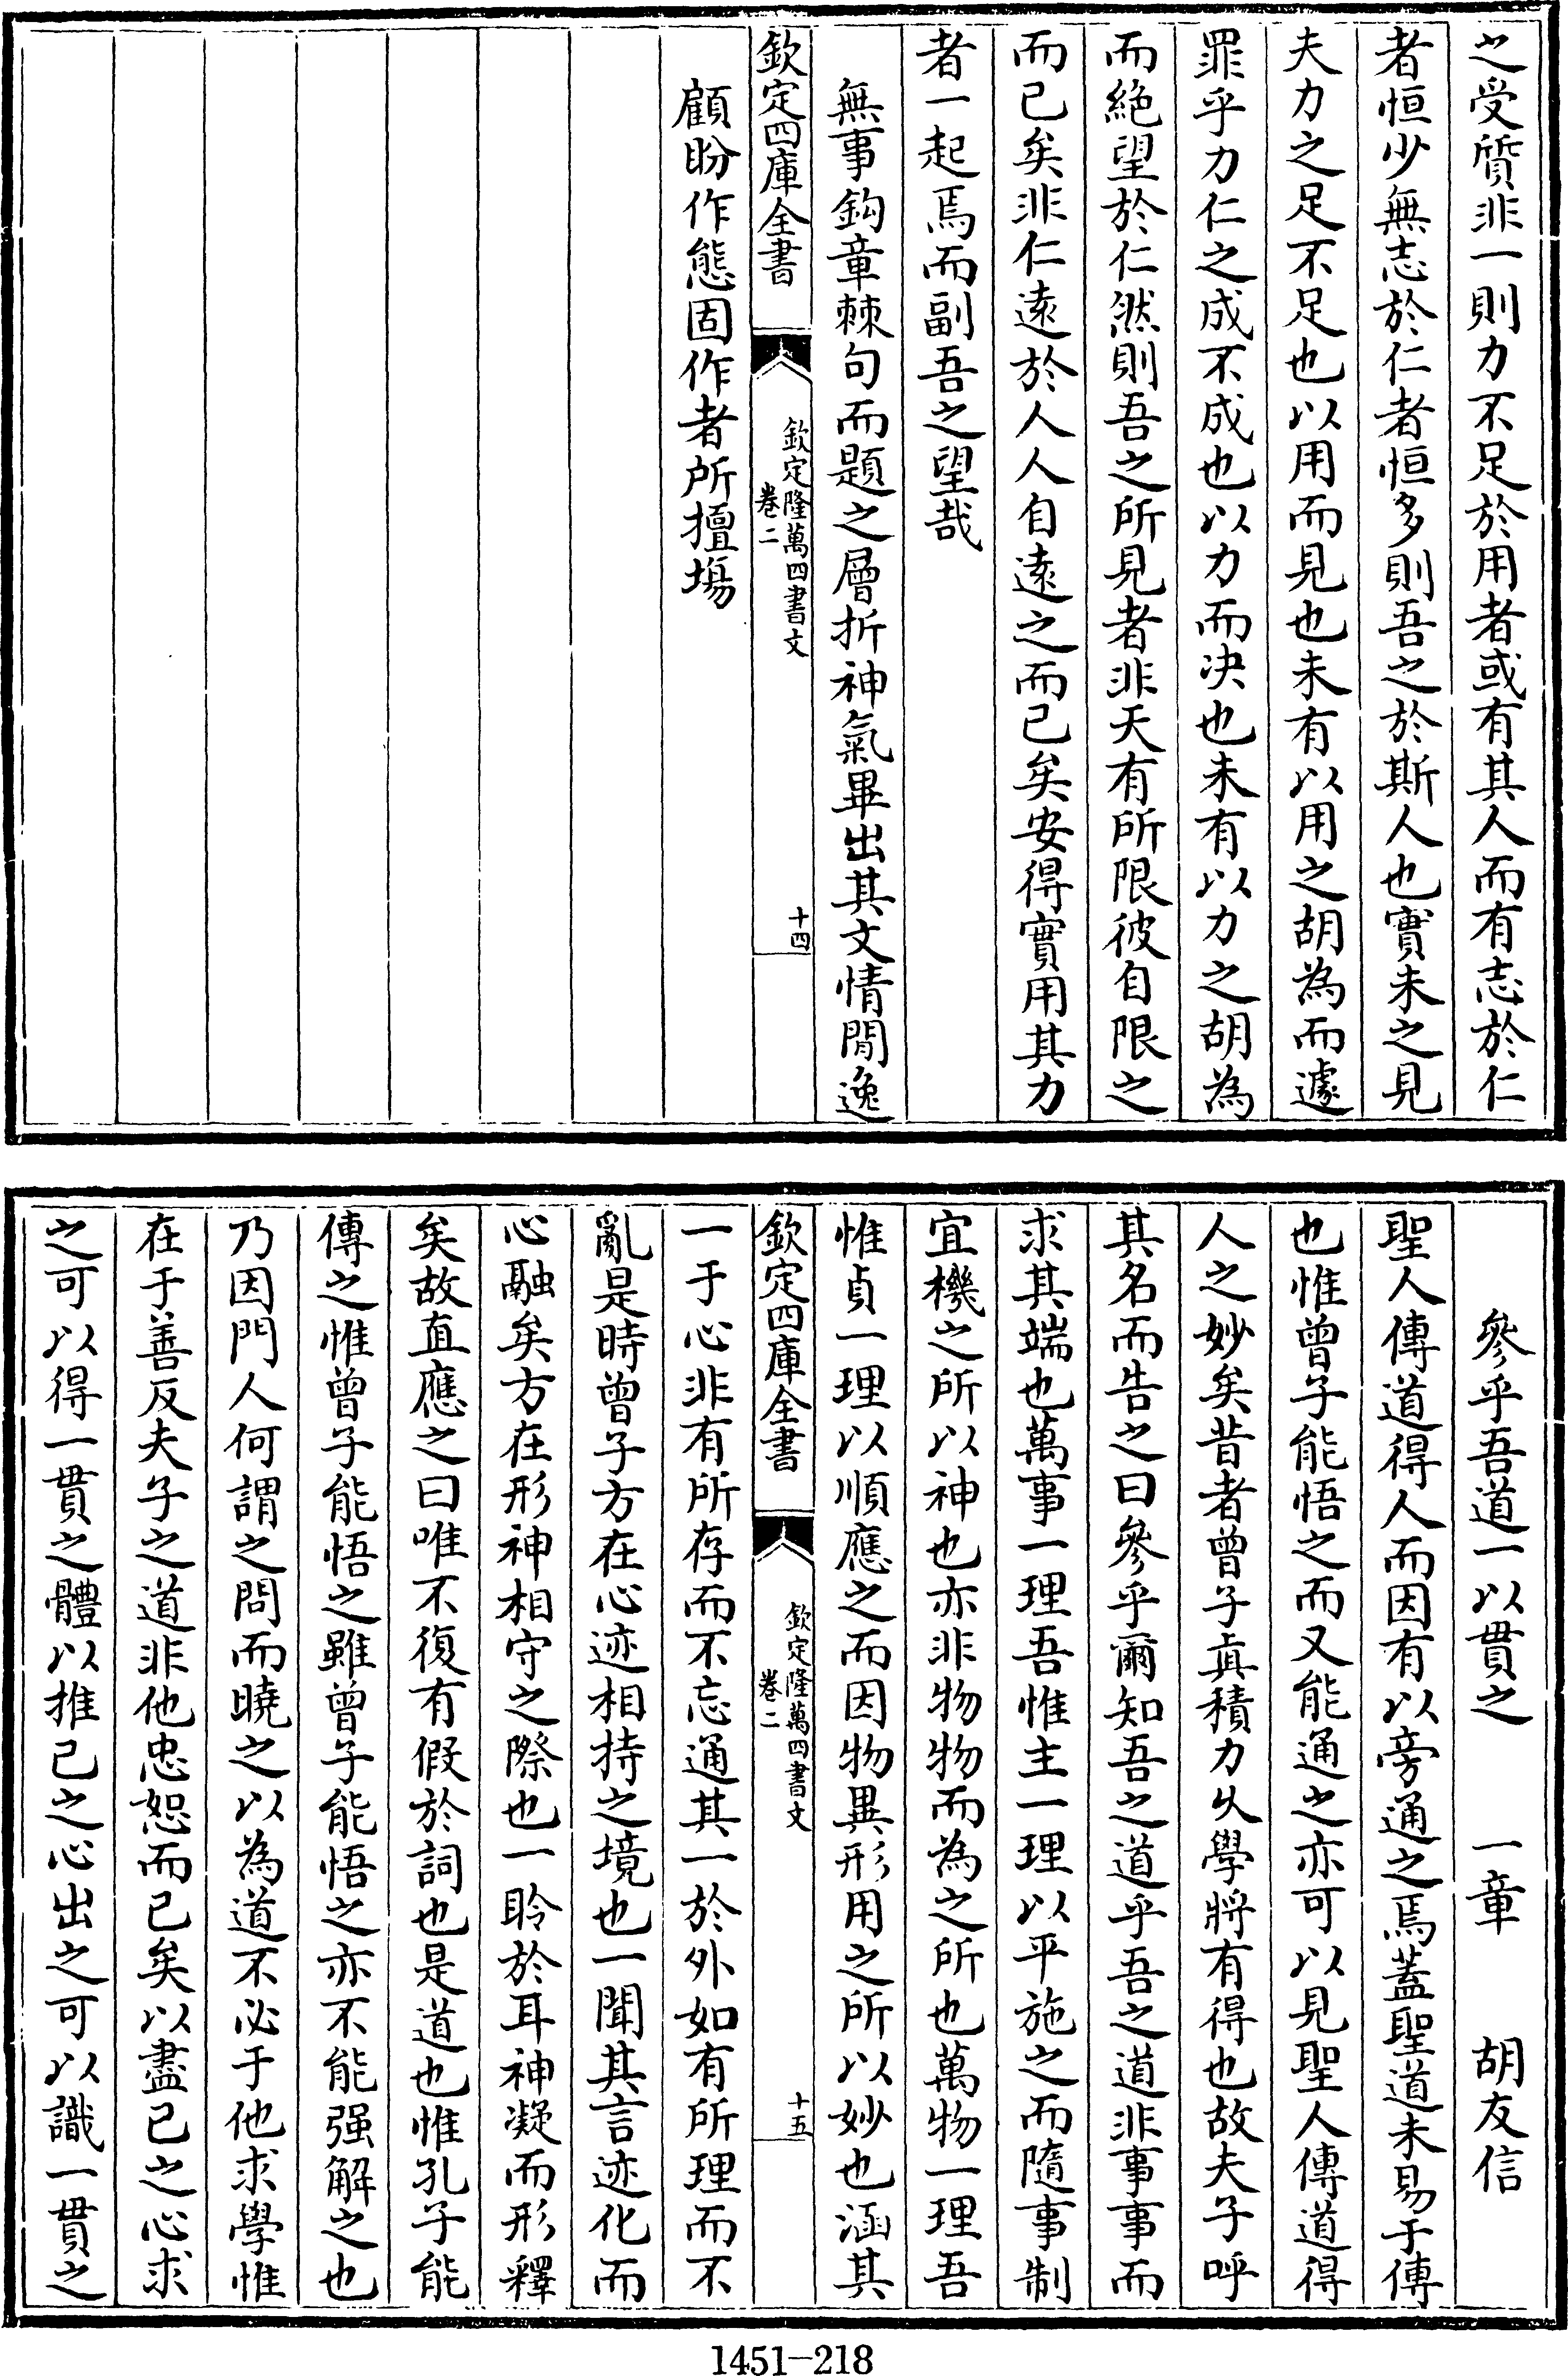 之受質非一則力不足於用者或有其人而有志於仁
者恒少無志於仁者恒多則吾之於斯人也實未之見
夫力之足不足也以用而見也未有以用之胡為而遽
罪乎力仁之成不成也以力而决也未有以力之胡為
而絶望於仁然則吾之所見者非天有所限彼自限之
而已矣非仁遠於人人自遠之而已矣安得實用其力
者一起焉而副吾之望哉
無事鈎章棘句而題之層折神氣畢出其文情閒逸
欽定四庫全書
欽定隆萬四書文
卷二
十四
顧盼作態固作者所擅塲
參乎吾道一以貫之 一章 胡友信
聖人傳道得人而因有以旁通之焉蓋聖道未易于傳
也惟曾子能悟之而又能通之亦可以見聖人傳道得
人之妙矣昔者曾子眞積力乆學將有得也故夫子呼
其名而告之曰參乎爾知吾之道乎吾之道非事事而
求其端也萬事一理吾惟主一理以平施之而隨事制
宜機之所以神也亦非物物而為之所也萬物一理吾
惟貞一理以順應之而因物異形用之所以妙也涵其
欽定四庫全書
欽定隆萬四書文
卷二
十五
一于心非有所存而不忘通其一於外如有所理而不
亂是時曾子方在心迹相持之境也一聞其言迹化而
心融矣方在形神相守之際也一聆於耳神凝而形釋
矣故直應之曰唯不復有假於詞也是道也惟孔子能
傳之惟曾子能悟之雖曾子能悟之亦不能强解之也
乃因門人何謂之問而曉之以為道不必于他求學惟
在于善反夫子之道非他忠恕而已矣以盡己之心求
之可以得一貫之體以推己之心出之可以識一貫之
1451-218